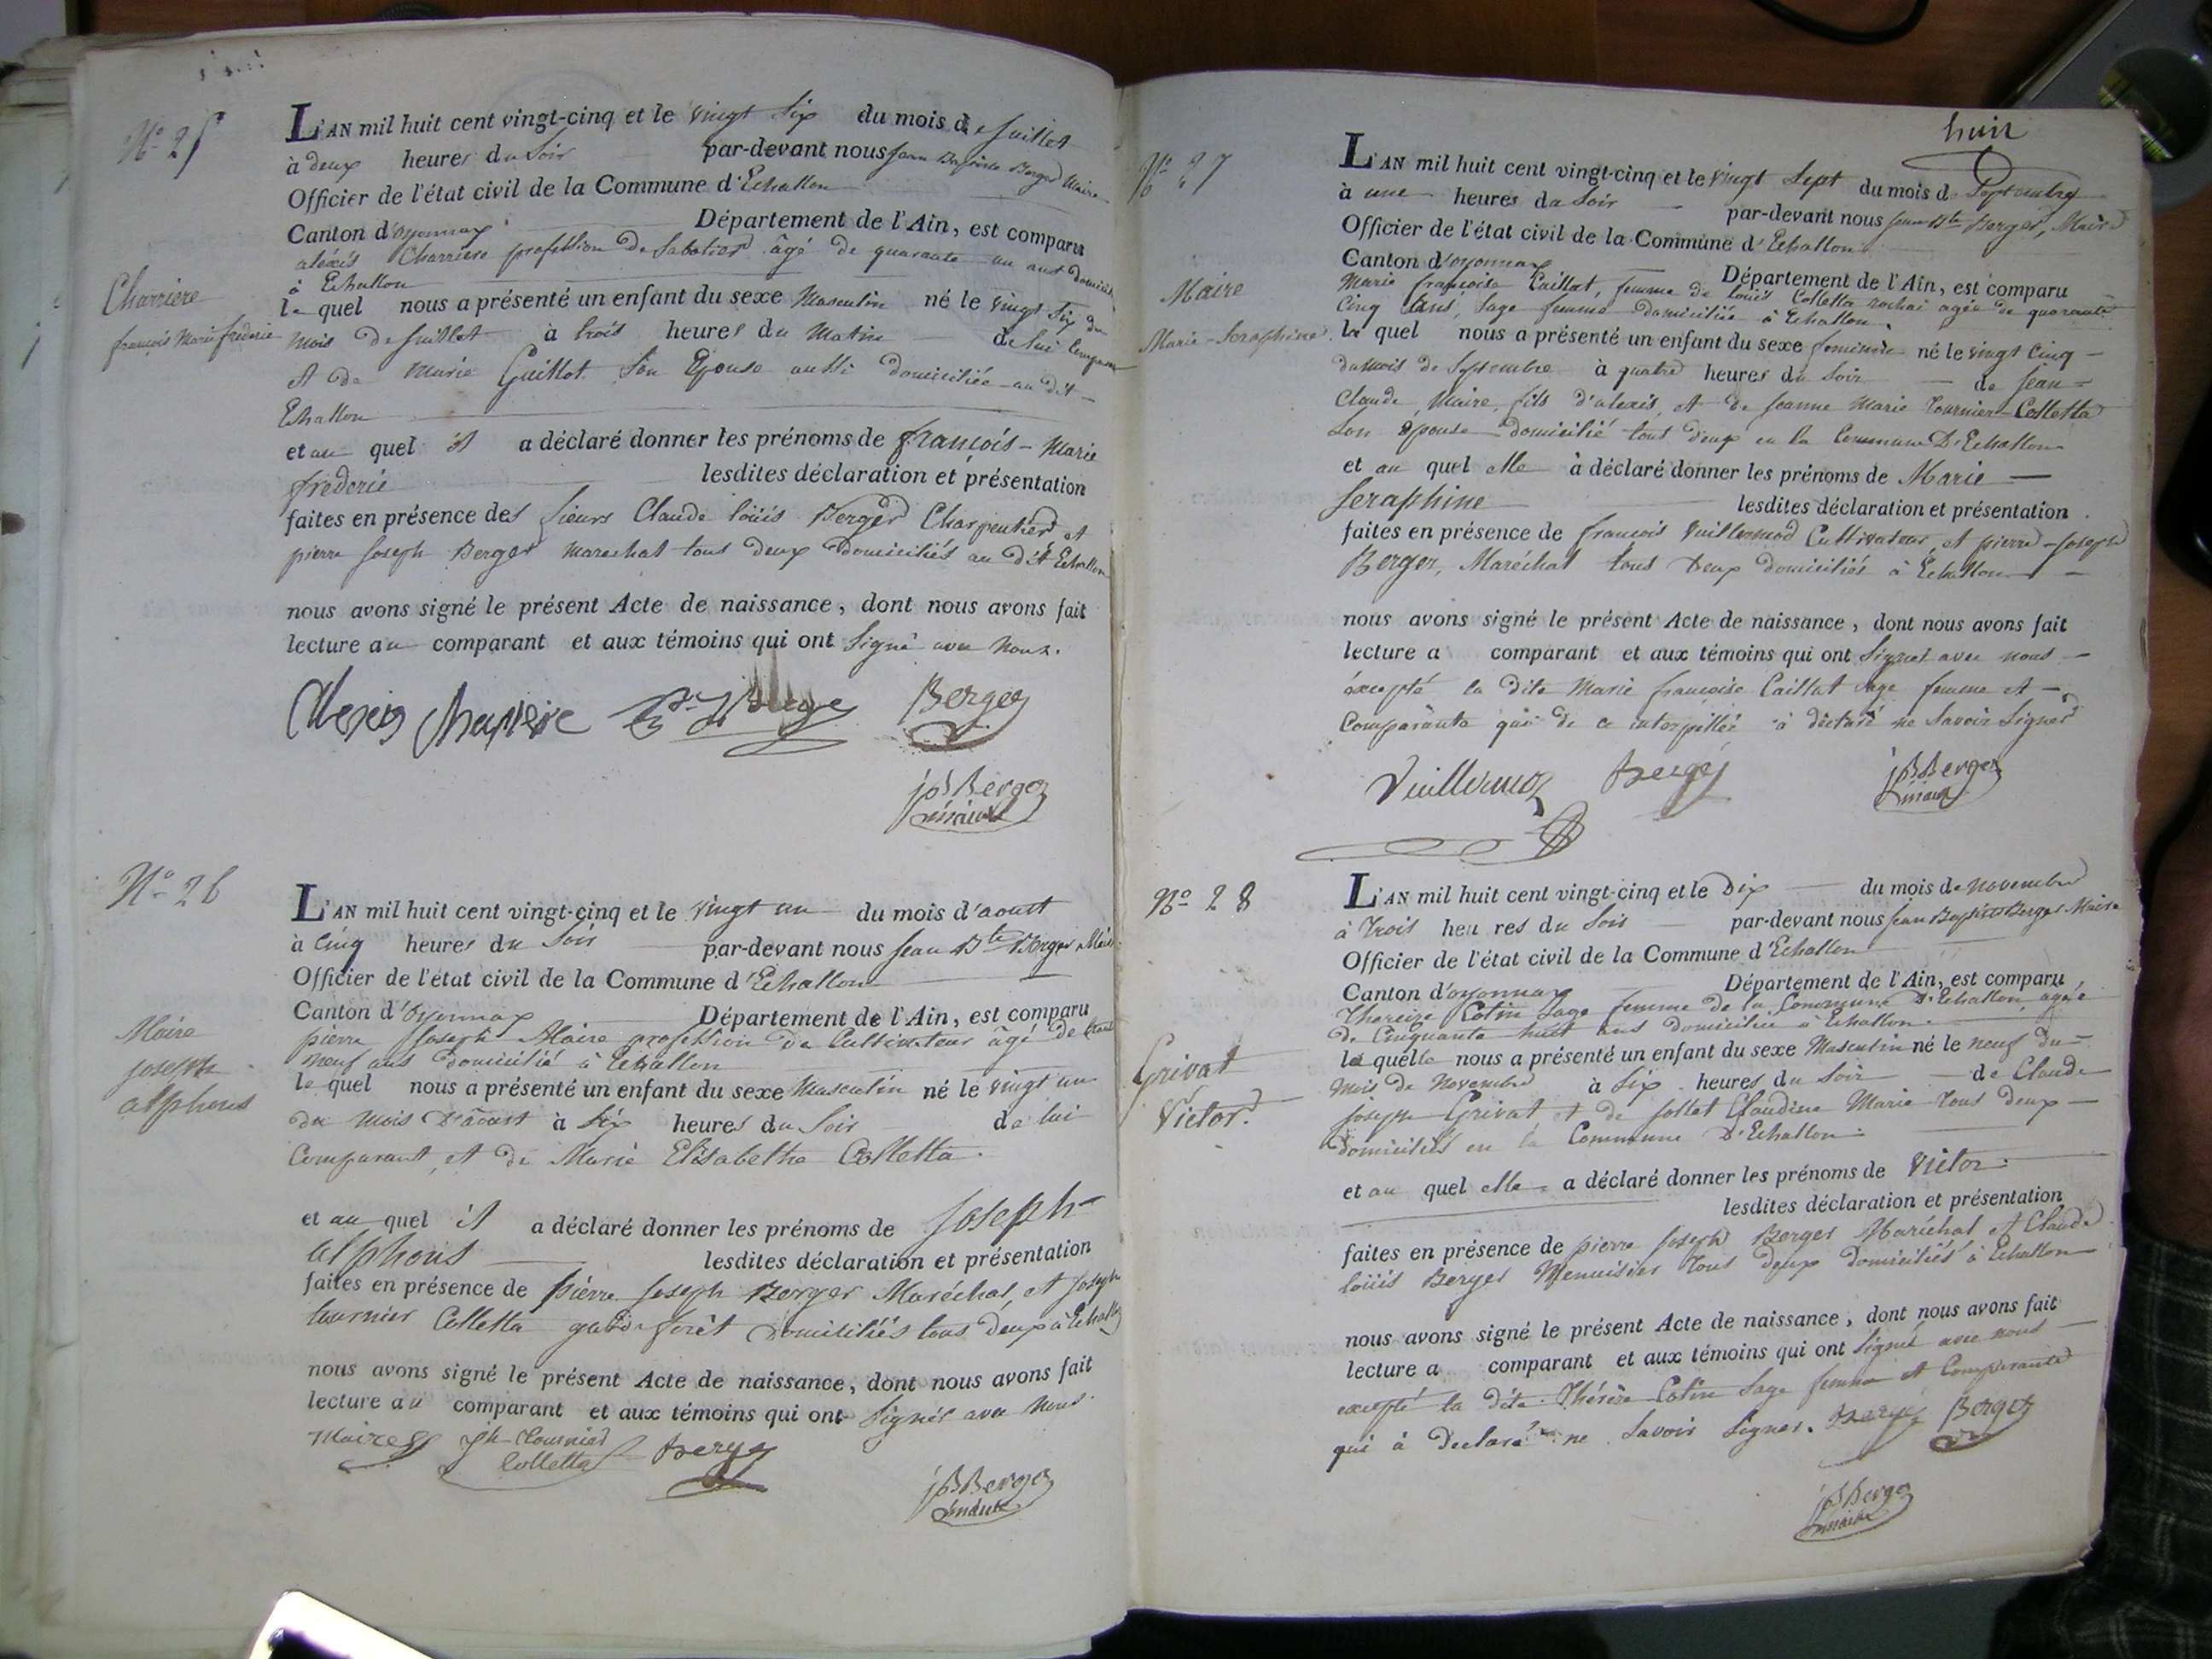 N.o 25
Charriere
françois Marie frédéric
L'AN mil huit cent vingt-cinq et le vingt Six du mois de Juillet
à deux heures du Soir par-devant nous Jean Baptiste Berger Maire
Officier de l'état civil de la Commune d'Echallon
Canton d'oyonnax Département de l'Ain, est comparu
alexis Charriere profession de Sabotier âgé de quarante un ans domicilié
à Echallon
le quel nous a présenté un enfant du sexe Masculin né le vingt Six du
mois de Juillet à trois heures du Matin de lui Comparant
et de Marie Guillot Son Epouse aussi domiciliée au dit
Echallon
et au quel il a déclaré donner les prénoms de françois - Marie
fréderic lesdites déclaration et présentation
faites en présence des Sieurs Claude loüis Berger Charpentier et
pierre Joseph Berger marechal tous deux domiciliés au dit Echallon
nous avons signé le présent Acte de naissance, dont nous avons fait
lecture au comparant et aux témoins qui ont Signé avec nous.
Alexis Charriere Berger
jB Berger
maire
N.o 26
Maire
joseph
alphons
L'AN mil huit cent vingt-cinq et le vingt un du mois d'aoust
à Cinq heures du Soir par-devant nous Jean Bte Berger Maire
Officier de l'état civil de la Commune d'Echallon
Canton d'Oyonnax Département de l'Ain, est comparu
pierre Joseph Maire profession de Cultivateur âgé de trente
neuf ans domicilié à Echallon
le quel nous a présenté un enfant du sexe Masculin né le vingt un
du mois D'aoust à Six heures du Soir de lui
Comparant, et de Marie Elisabethe Colletta.
et au quel il a déclaré donner les prénoms de Joseph-
alphons lesdites déclaration et présentation
faites en présence de pierre Joseph Berger Maréchal, et Joseph
tournier Colletta garde forêt domiciliés tous deux à Echallon
nous avons signé le présent Acte de naissance, dont nous avons fait
lecture au comparant et aux témoins qui ont Signés avec nous
Maire Jh Tournier
Colletta Berger
jB Berger
maire
huit
N.o 27
Maire
Marie-Seraphine
L'AN mil huit cent vingt-cinq et le vingt Sept du mois de Septembre
à une heures du Soir par-devant nous Jean Bte Berger, Maire
Officier de l'état civil de la Commune d'Echallon
Canton d'oyonnax Département de l'Ain, est comparu
Marie françoise Caillat, femme de louis Colletta rochai agée de quarante
Cinq ans, Sage femme domiciliée à Echallon.
la quel nous a présenté un enfant du sexe feminin né le vingt Cinq -
du mois de Septembre à quatre heures du Soir de Jean =
Claude Maire, fils d'alexis, et de Jeanne Marie Tournier-Colletta
Son épouse domicilié tous deux en la Commune D'Echallon
et au quel elle à déclaré donner les prénoms de Marie —
Seraphine lesdites déclaration et présentation
faites en présence de françois Vuillermod Cultivateur, et pierre-Joseph
Berger, Maréchal tous Deux domiciliés à Echallon —
nous avons signé le présent Acte de naissance, dont nous avons fait
lecture a comparant et aux témoins qui ont Signés avec nous —
éxcepté la dite Marie françoise Caillat Sage femme et —
Comparante qui de ce interpellée à déclaré ne Savoir Signer
Vuillermoz Berger jB Berger
maire
N.o 28
Grivat
Victor.
L'AN mil huit cent vingt-cinq et le Dix — du mois de novembre
à Trois heures du Soir par-devant nous Jean Baptiste Berger Maire
Officier de l'état civil de la Commune d'Echallon
Canton d'oyonnax Département de l'Ain, est comparu
Thereize Colin Sage femme de la Commune D'Echallon agée
de Cinquante huit ans domiciliée à Echallon.
la quelle nous a présenté un enfant du sexe Masculin né le neuf du =
Mois de Novembre à Six heures du Soir de Claude
joseph Grivat et de jollet Claudine Marie Tous deux —
domiciliés en la Commune D'Echallon.
et au quel elle a déclaré donner les prénoms de Victor.
lesdites déclaration et présentation
faites en présence de pierre Joseph Berger Maréchal et Claude
loüis Berger Menuisier Tous deux domiciliés à Echallon
nous avons signé le présent Acte de naissance, dont nous avons fait
lecture a comparant et aux témoins qui ont Signé avec nous —
excepté la dite Thérèse Colin Sage femme et Comparante
qui à declaré ne Savoir Signer. Berger Berger
jB Berger
maire